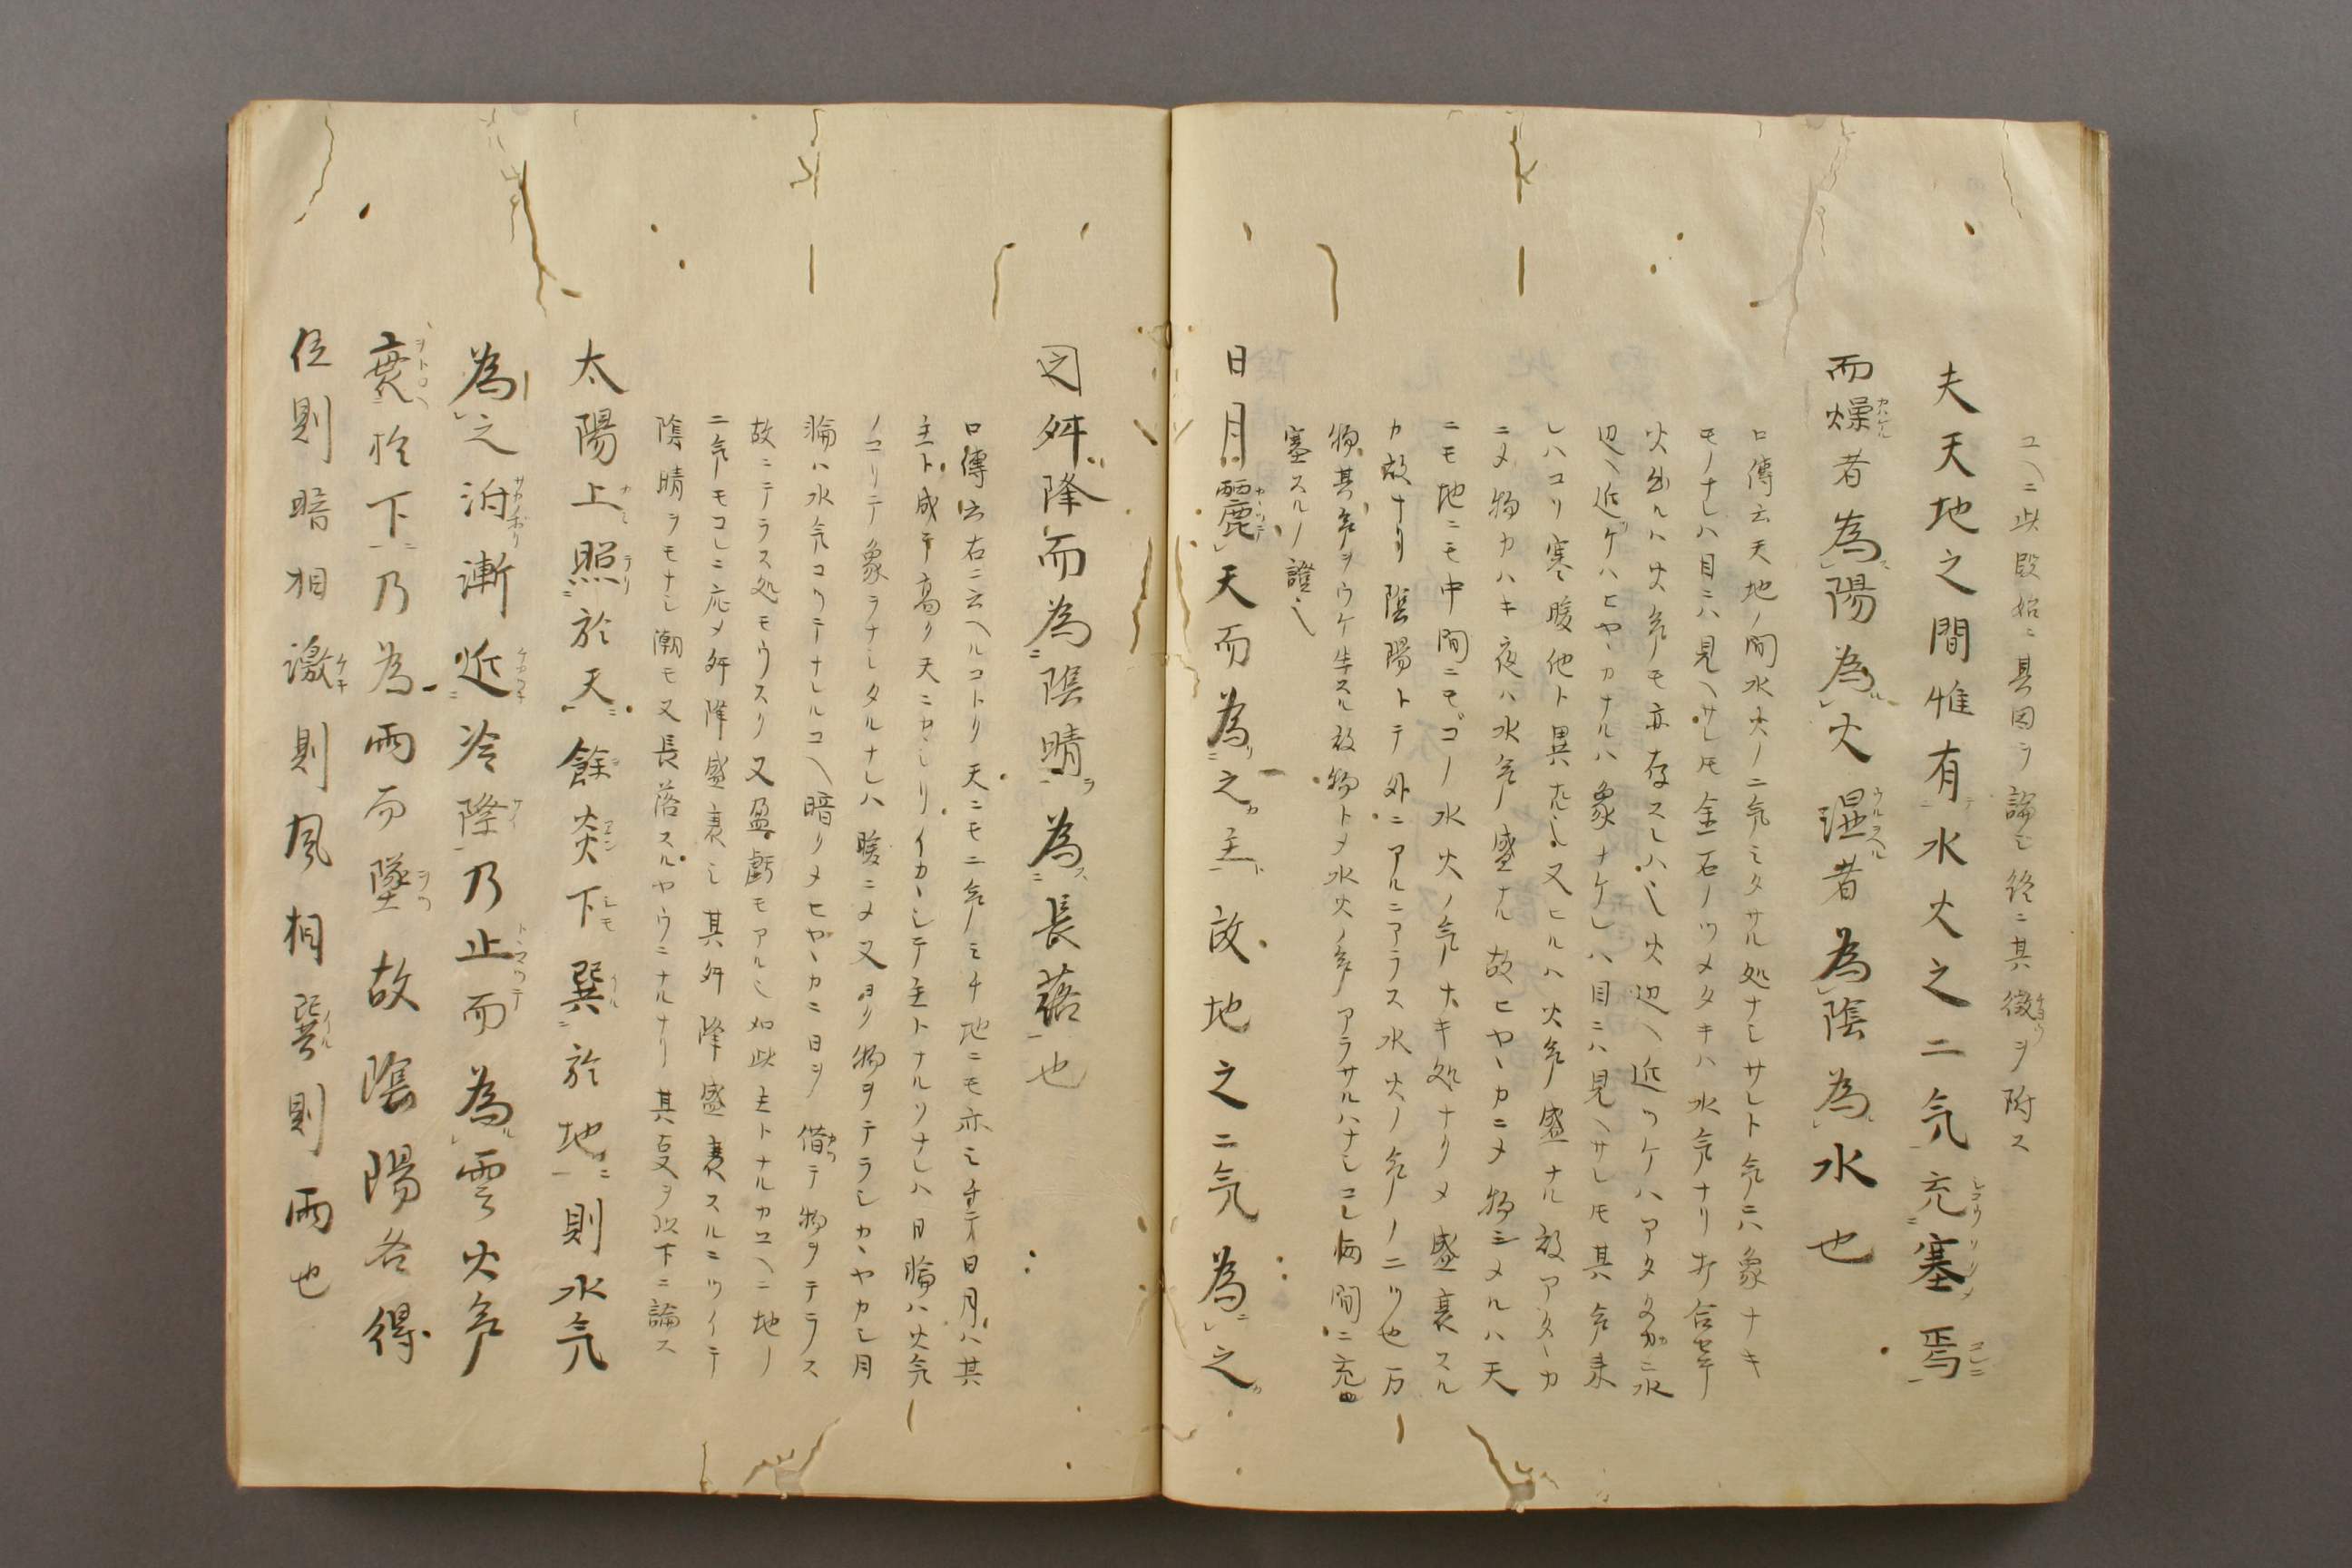 ユヘニ此段始ニ其因ヲ論シ終ニ其徴ヲ附ス
夫天地之間惟有水火之二気充塞焉
而燥者為陽為火湿者為陰為水也
口傳云天地ノ間水火ノ二気ミタサル処ナシサレト気ニハ象ナキ
モノナレハ目ニハ見ヘサレ𪜈金石ノツメタキハ水気ナリ打合セテ
火出ルハ火気モ亦存スレハ也火辺ヘ近ツケハアタヽカニ水
辺ヘ近ケハヒヤヽカナルハ象ナケレハ目ニハ見ヘサレ𪜈其気来
レハコリ寒暖他ト異ナル也又ヒルハ火気盛ナル故アタヽカ
ニメ物カハキ夜ハ水気盛ナル故ヒヤヽカニメ物シメルハ天
ニモ地ニモ中間ニモコノ水火ノ気ナキ処ナクメ盛衰スル
カ故ナリ陰陽トテ外ニアルニアラス水火ノ気ノ二ツ也万
物其気ヲウケ生スル故物トメ水火ノ気アラサルハナシコレ両間ニ充
塞スルノ證也
日月麗天而為之主故地之二気為之
因舛降而為陰晴為長落也
口傳云右ニ云ヘルコトク天ニモ二気ミチ地ニモ亦ミチテ日月ハ其
主ト成テ高ク天ニカヽレリイカヽシテ主トナルソナレハ日輪ハ火気
ノコリテ象ヲナシタルナレハ暖ニメ又ヨク物ヲテラシカヽヤカシ月
輪ハ水気コリテナレルユヘ暗クメヒヤヽカニ日ヲ借テ物ヲテラス
故ニテラス処モウスク又盈虧モアル也如此主トナルカユヘニ地ノ
二気モコレニ応メ舛降盛衰シ其舛降盛衰スルニツイテ
陰晴ヲモナシ潮モ又長落スルヤウニナルナリ其変ヲ以下ニ論ス
太陽上照於天餘炎下巽於地則水気
為之泝漸近冷際乃止而為雲火気
衰於下乃為雨而墜故陰陽各得
位則暗相激則風相巽則雨也